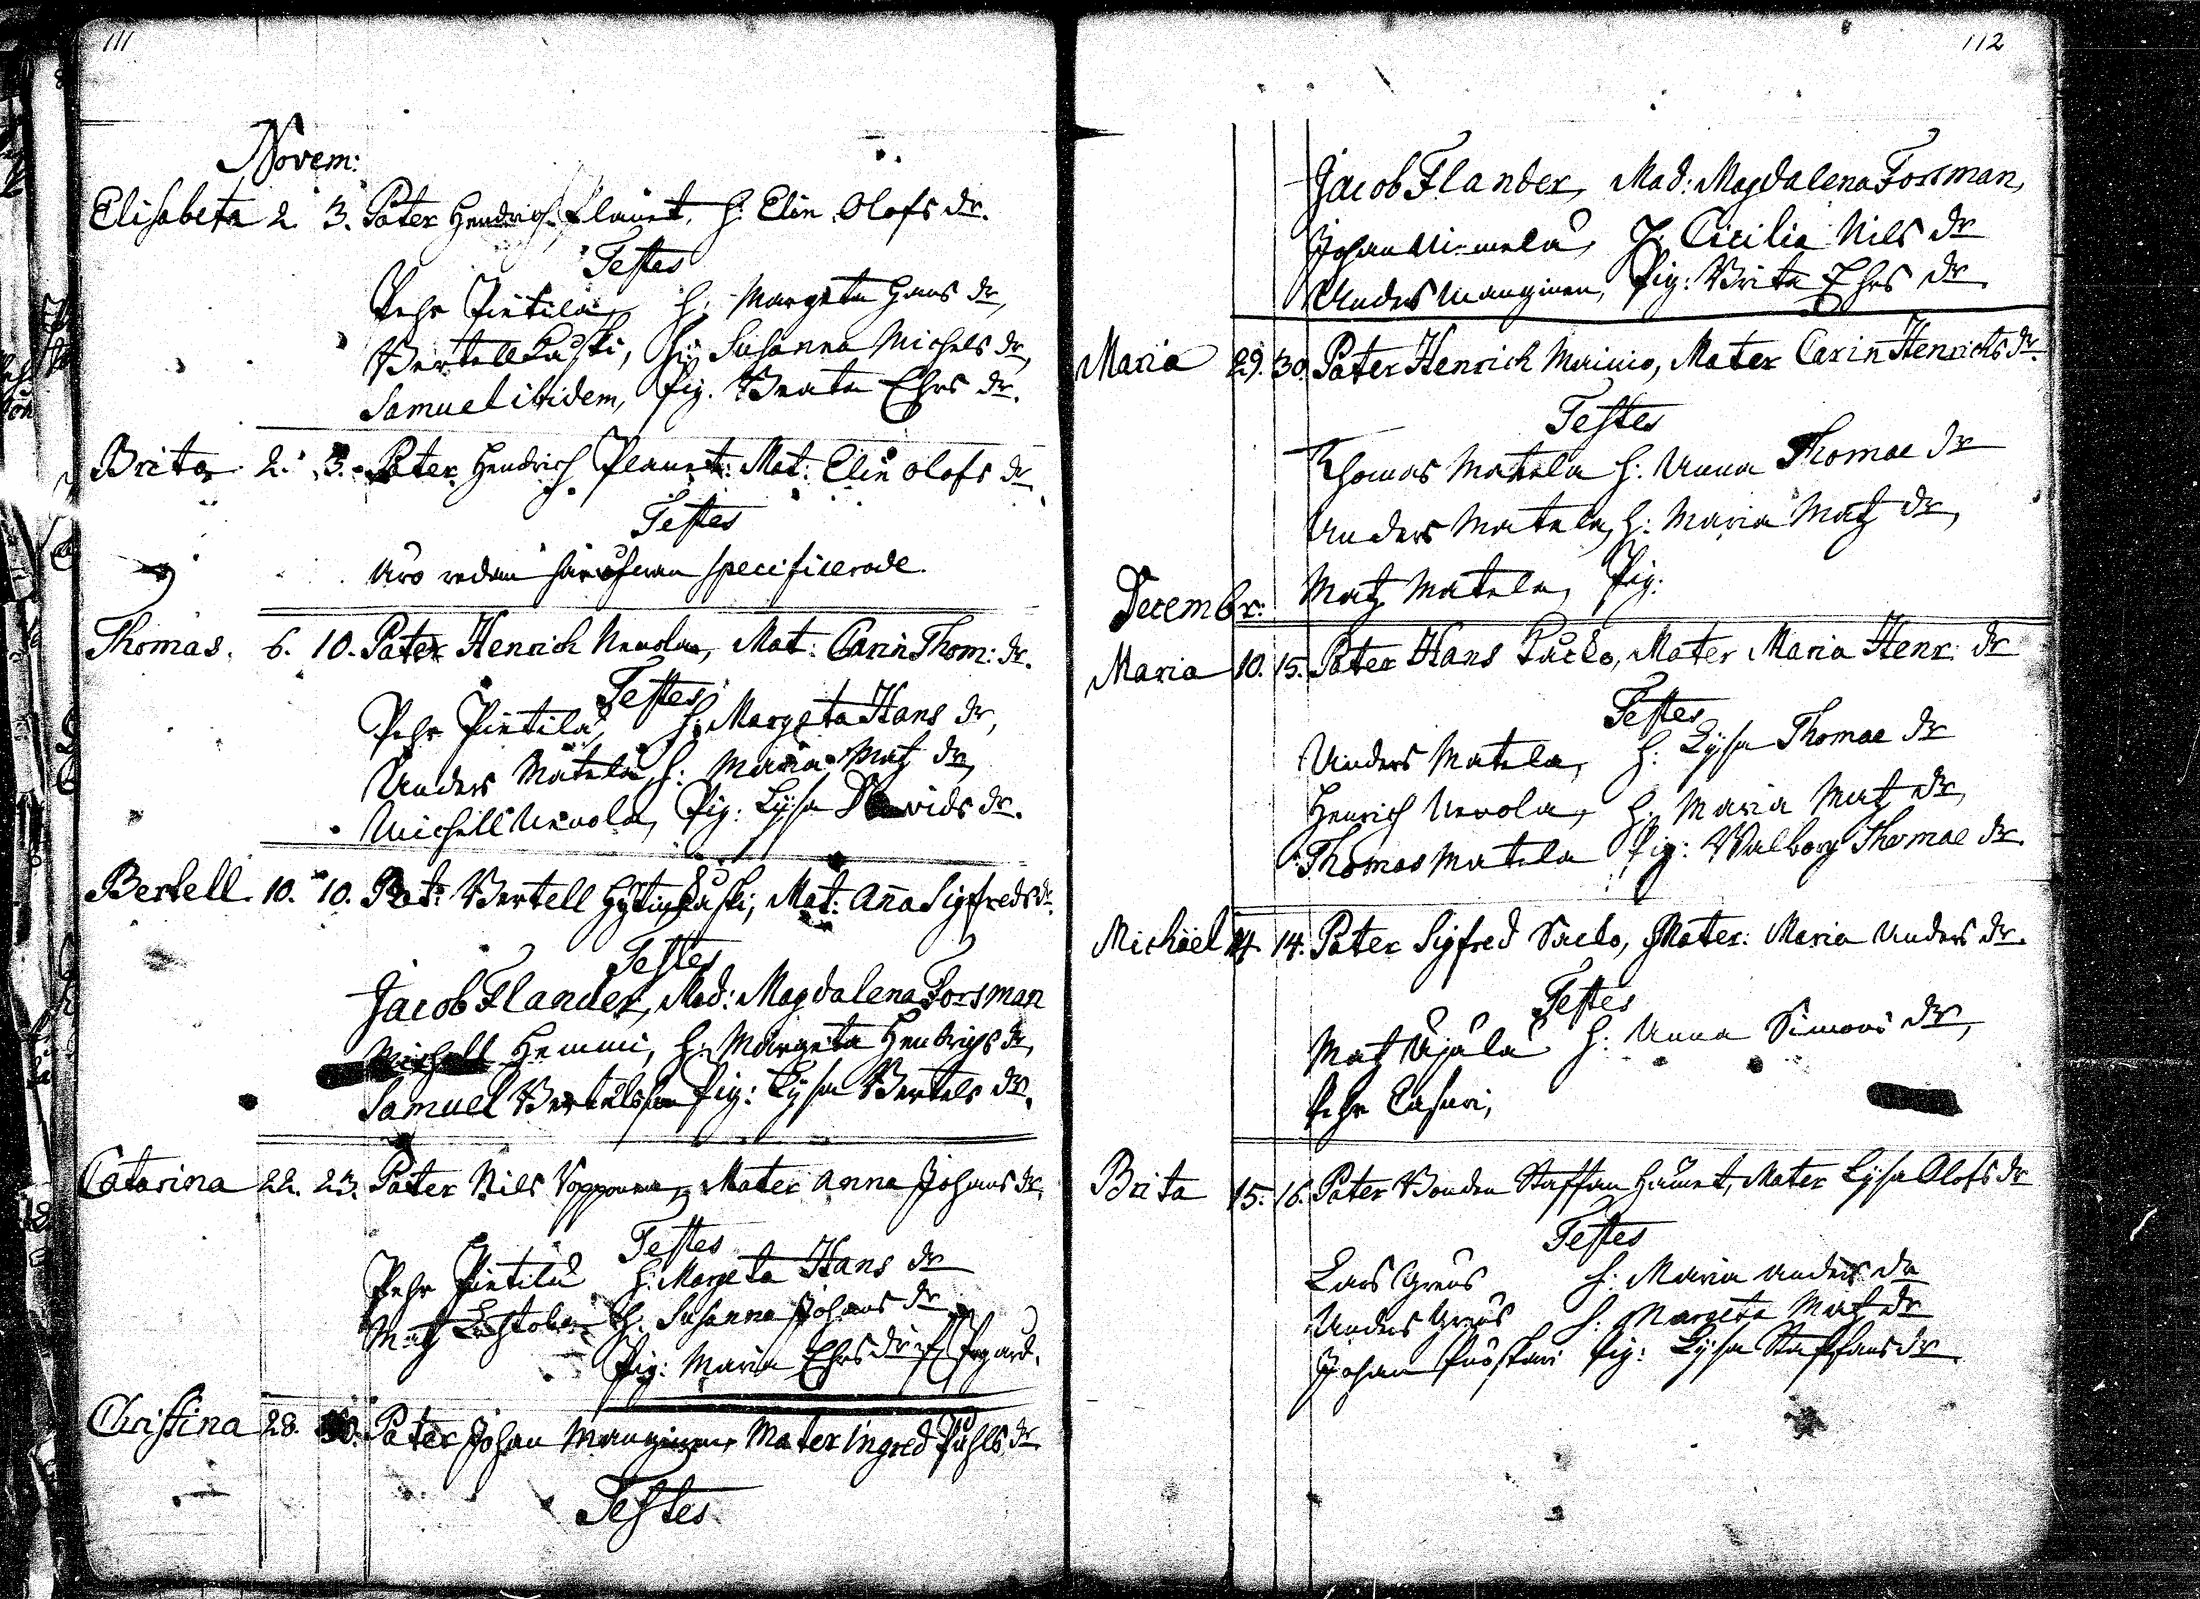 111
Novem:
Elisabeta 2. 3. Pater Hendrich Planet, H: Elin Olofs dr.
Testes
Pehr Pietilä, H: Margeta Hans dr,
Bertell Kaski, H: Susanna Michels dr,
Samuel ibidem, Pig. Beata Ehrs dr.
Brita 2. 3. Pater Hendrich Planet: Mat: Elin Olofs dr
Testes
äro redan specificerade
Thomas. 6. 10. Pater Henrich Nevola, Mat: Carin Thom: dr.
Testes
Pehr Pietilä, H: Margeta Hans dr,
Anders Matela, H: Maria Matz dr,
Michell Nevola, Pig: Lysa Davids dr.
Bertell. 10. 10. Pat: Bertell Mat: Anna Sigfreds dr.
Testes
Jacob Flander, Mad: Magdalena Forsman
Michell Hemmi, H: Margeta Hendrichs dr,
Samuel Bertelsson Pig: Lysa Bertels dr.
Catarina 22. 23. Pater Nils Mater Anna Johans dr,
Testes
Pehr Pietilä H: Margeta Hans dr
Matz H: Susanna Johans dr
Pig: Maria Ehrs dr
Christina 28. 30. Pater Johan Manginen, Mater Ingred Påhls dr
Testes
112
Jacob Flander, Mad: Magdalena Forsman,
Johan H: Cicilia Nils dr
Anders Manginen, Pig: Brita Ehrs dr
Maria 29. 30. Pater Henrich Mainio, Mater Carin Henrichs dr.
Testes
Thomas Matela H: Anna Thomae dr
Anders Matela, H: Maria Matz dr,
Matz Matela, Pig:
Decembr:
Maria 10. 15. Pater Hans Mater Maria Henr: dr
Testes
Anders Matela, H: Lysa Thomae dr
Henrich Nevola, H: Maria Matz dr,
Thomas Matela Pig: Walborg Thomae dr.
Michäel 14. 14. Pater Sigfred Mater: Maria Anders dr.
Testes
Matz Äjälä H: Anna Simons dr,
Pehr Casuri,
Brita 15. 16. Pater Bonden Staffan Mater Lysa Olofs dr
Testes
Lars H: Maria Anders dr
Anders H: Margeta Matz dr
Johan Pig: Lysa Staffans dr.